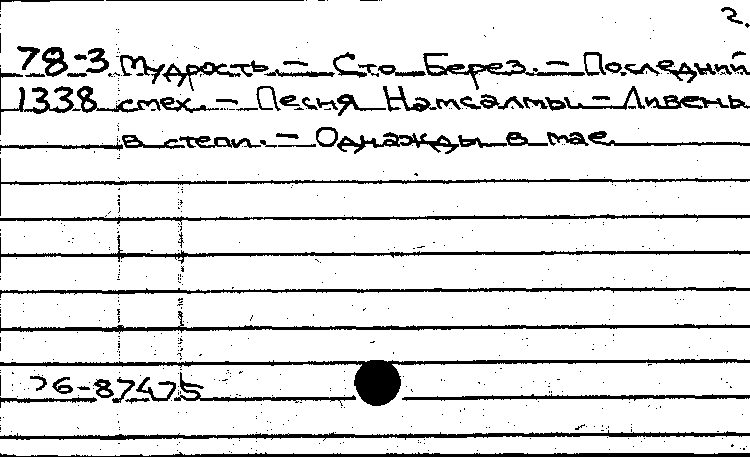 2.
78-3 Мудрость. – Сто Берез. – Последний
1338 смех. – Песня Намсалмы. – Ливень
в степи. – Однажды в мае.
76-87475